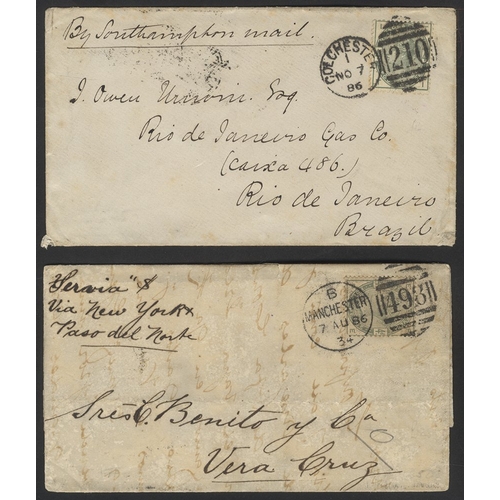 By Southampton mail.
COLCHESTER
1
NO 7
86
210
J. Owen Unwin. Esq.
Rio de Janeiro Gas Co.
(Caixa 486.)
Rio de Janeiro
Brazil
"Servia" &
Via New York &
Paso del Norte
B
MANCHESTER
27 AU 86
34
498
Sres C. Benito y Ca
Vera Cruz